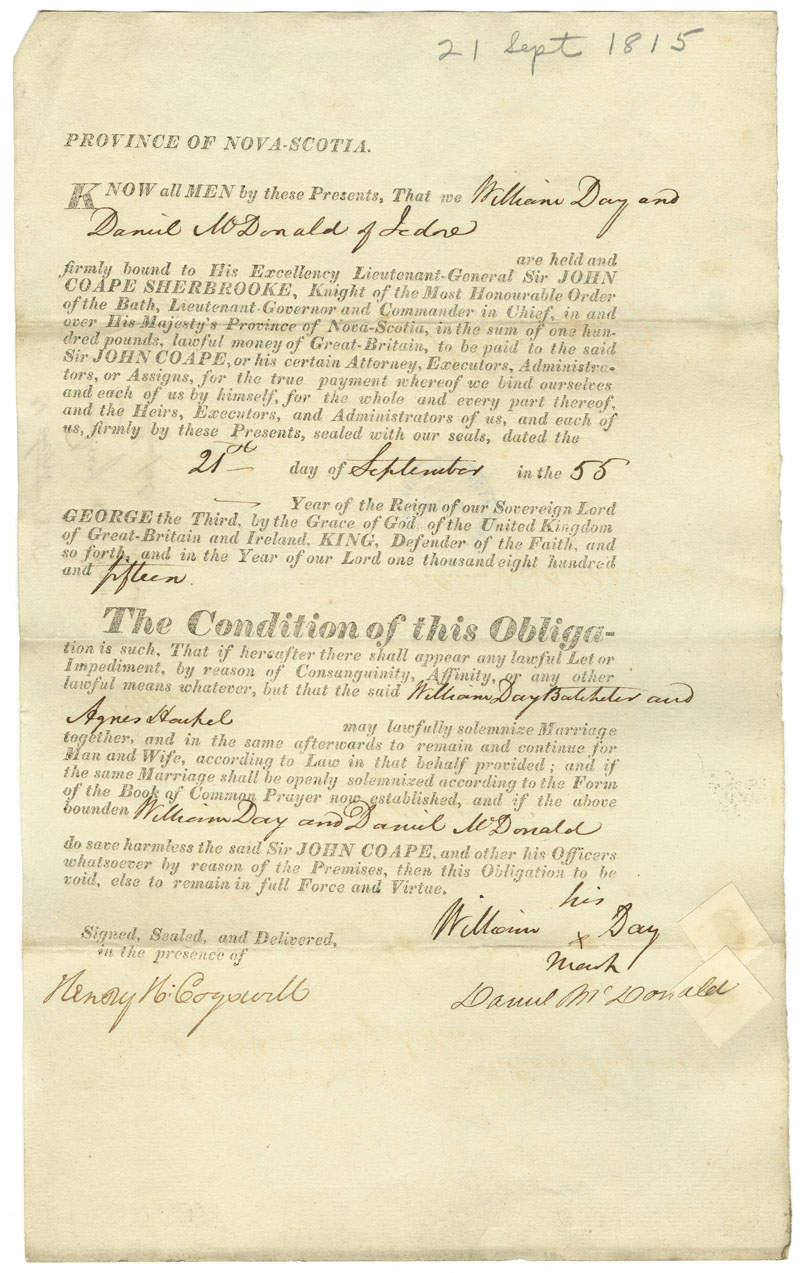 21 Sept 1815
PROVINCE OF NOVA-SCOTIA.
KNOW all MEN by these Presents, That we William Day and
Daniel McDonald of Jedore
are held and
firmly bound to His Excellency Lieutenant-General Sir JOHN
COAPE SHERBROOKE, Knight of the Most Honourable Order
of the Bath, Lieutenant-Governor and Commander in Chief, in and
over His Majesty's Province of Nova-Scotia, in the sum of one hun-
dred pounds, lawful money of Great-Britain, to be paid to the said
Sir JOHN COAPE, or his certain Attorney, Executors, Administra-
tors, or Assigns, for the true payment whereof we bind ourselves
and each of us by himself, for the whole and every part thereof,
and the Heirs, Executors, and Administrators of us, and each of
us, firmly by these Presents, sealed with our seals, dated the
21st day of September in the 55
Year of the Reign of our Sovereign Lord
GEORGE the Third, by the Grace of God, of the United Kingdom
of Great-Britain and Ireland, KING, Defender of the Faith, and
so forth, and in the Year of our Lord one thousand eight hundred
and fifteen.
The Condition of this Obliga-
tion is such, That if hereafter there shall appear any lawful Let or
Impediment, by reason of Consanguinity, Affinity, or any other
lawful means whatever, but that the said William Day Batcheler and
Agnes
may lawfully solemnize Marriage
together, and in the same afterwards to remain and continue for
Man and Wife, according to Law in that behalf provided; and if
the same Marriage shall be openly solemnized according to the Form
of the Book of Common Prayer now established, and if the above
bounden William Day and Daniel McDonald
do save harmless the said Sir JOHN COAPE, and other his Officers
whatsoever by reason of the Premises, then this Obligation to be
void, else to remain in full Force and Virtue.
Signed, Sealed, and Delivered,
in the presence of
Henry H: Cogswell
his
William x Day
mark
Daniel McDonald